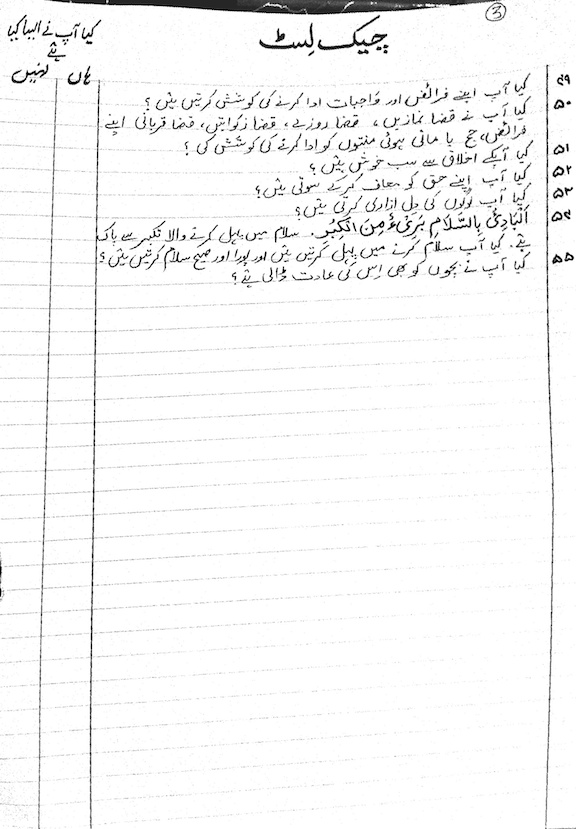 ③
چیک لِسٹ
کیا آپ نے ایسا کیا
ہے
ہاں نہیں
۴۹ کیا آپ اپنے فرائض اور واجبات ادا کرنے کی کوشش کرتیں ہیں؟
۵۰ کیا آپ نے قضا نمازیں، قضا روزے، قضا زکواتیں، قضا قربانی اپنے
فرائض، حج یا مانی ہوئی منتوں کو ادا کرنے کی کوشش کی؟
۵۱ کیا آپکے اخلاق سے سب خوش ہیں؟
۵۲ کیا آپ اپنے حق کو معاف کرکے سوتی ہیں؟
۵۳ کیا آپ لوگوں کی دل ازاری کرتی ہیں؟
۵۴ اَلْبَادِئُ بِالسَّلَامِ بَرِیْءٌ مِنَ الْکِبْرِ۔ سلام میں پہل کرنے والا تکبر سے پاک
ہے۔ کیا آپ سلام کرنے میں پہل کرتیں ہیں اور پورا اور صحیح سلام کرتیں ہیں؟
۵۵ کیا آپ نے بچوں کو بھی اِس کی عادت ڈالی ہے؟